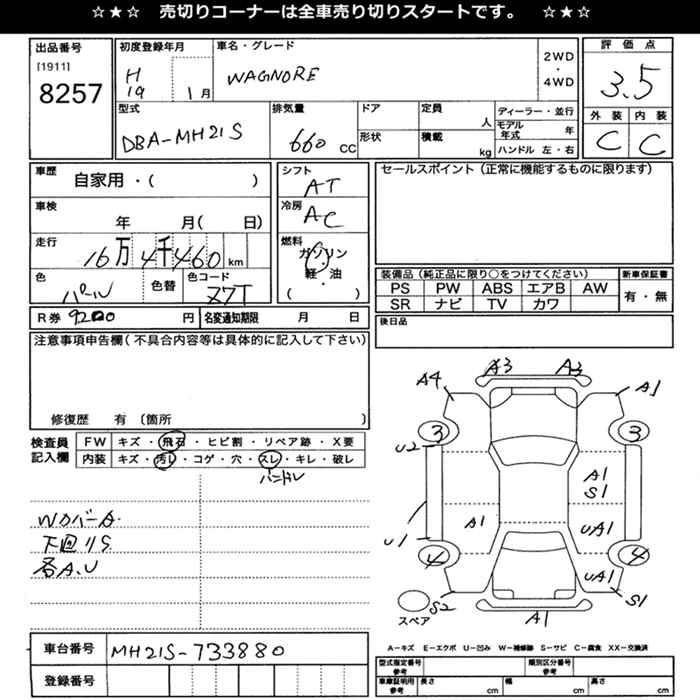 ☆★☆ 売切りコーナーは全車売り切りスタートです。 ☆★☆
出品番号
[1911]
8257
初度登録年月
H
19
1月
車名・グレード
WAGNORE
2WD
・
4WD
評価点
3.5
外装 内装
C C
型式
DBA-MH21S
排気量
660 CC
ドア
形状
定員
人
積載
kg
ディーラー・並行
モデル年式 年
ハンドル 左・右
車歴
自家用・( )
車検
年 月( 日)
走行
16万4千460 km
色
パール
色替
色コード
Z7T
シフト
AT
冷房
AC
燃料
ガソリン
軽・油
( )
セールスポイント (正常に機能するものに限ります)
装備品 (純正品に限り○をつけてください)
PS PW ABS エアB AW
SR ナビ TV カワ
新車保証書
有・無
R券 9200 円
名変通知期限 月 日
後日品
注意事項申告欄(不具合内容等は具体的に記入して下さい)
修復歴 有 〔箇所 〕
検査員
記入欄
FW キズ・飛石・ヒビ割・リペア跡・X要
内装 キズ・汚レ・コゲ・穴・スレ・キレ・破レ
ハンドル
Wカバー A
下回りS
各A.U
A4 A3 A3 A1
3 3
U2
A1
S1
A1 UA1
U1
4 4
UA1
S2 S1
A1
スペア
A-キズ E-エクボ U-凹み W-補修跡 S-サビ C-腐食 XX-交換済
車台番号
MH21S-733880
登録番号
型式指定番号
参考
類別区分番号
参考
車庫証明用
参考
長さ cm
幅 cm
高さ cm